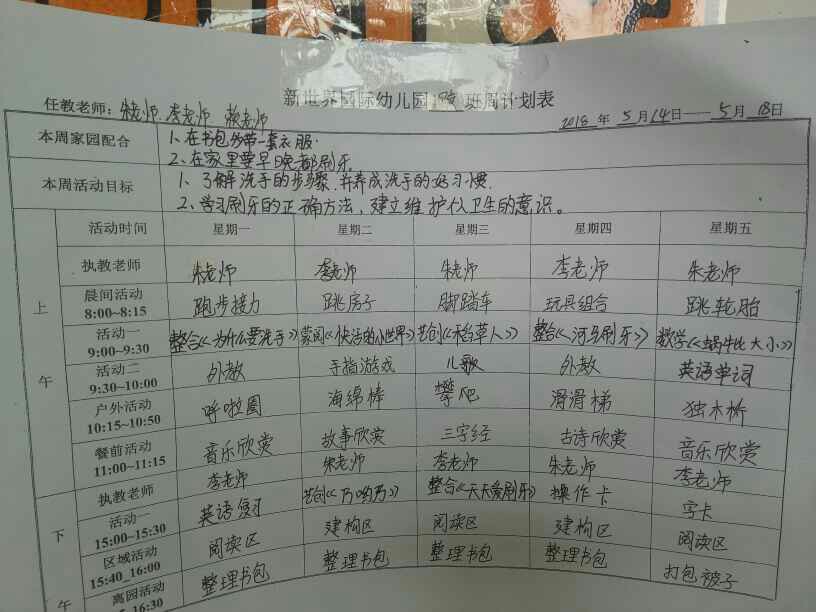 新世界國际幼儿园 班周计划表
任教老师：朱老师、李老师 赖老师 2018年5月14日——5月18日
本周家园配合 1、在书包多带一套衣服.
2、在家里要早晚都刷牙.
本周活动目标 1、了解洗手的步骤.并养成洗手的好习惯.
2、学习刷牙的正确方法、建立维护个人卫生的意识。
活动时间 星期一 星期二 星期三 星期四 星期五
上午
执教老师 朱老师 李老师 朱老师 李老师 朱老师
晨间活动 跑步接力 跳房子 脚踏车 玩具组合 跳轮胎
8:00~8:15
活动一 整合《为什么要洗手》 蒙阅《快活的小世界》 艺创《稻草人》 整合《河马刷牙》 数学《蜗牛比大小》
9:00~9:30
活动二 外教 手指游戏 儿歌 外教 英语单词
9:30~10:00
户外活动 呼啦圈 海绵棒 攀爬 滑滑梯 独木桥
10:15~10:50
餐前活动 音乐欣赏 故事欣赏 三字经 古诗欣赏 音乐欣赏
11:00~11:15
下午
执教老师 李老师 朱老师 李老师 朱老师 李老师
活动一 英语复习 艺创 整合《天天爱刷牙》 操作卡 字卡
15:00~15:30
区域活动 阅读区 建构区 阅读区 建构区 阅读区
15:40_16:00
离园活动 整理书包 整理书包 整理书包 整理书包 打包被子
16:30